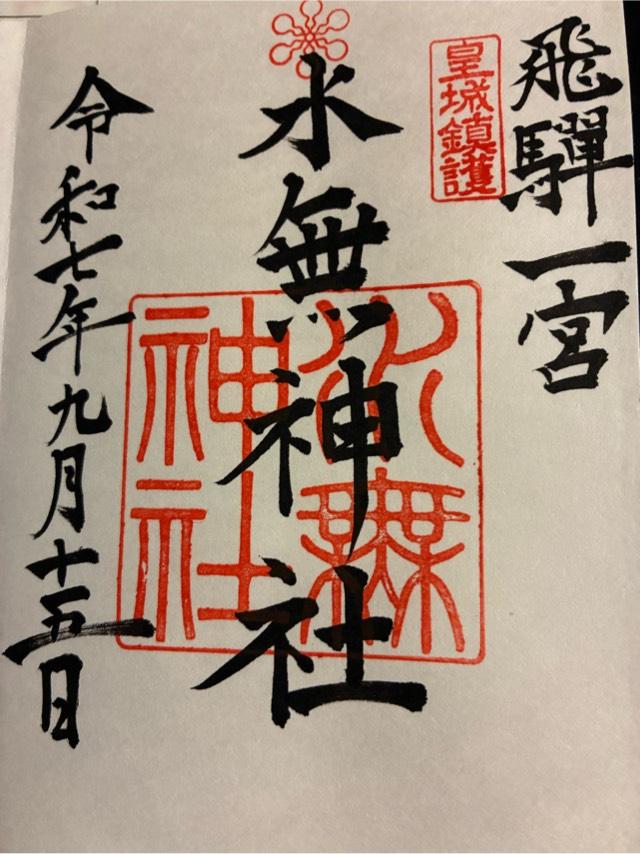 飛騨一宮
皇城鎮護
水無神社
水無神社
令和七年九月十五日